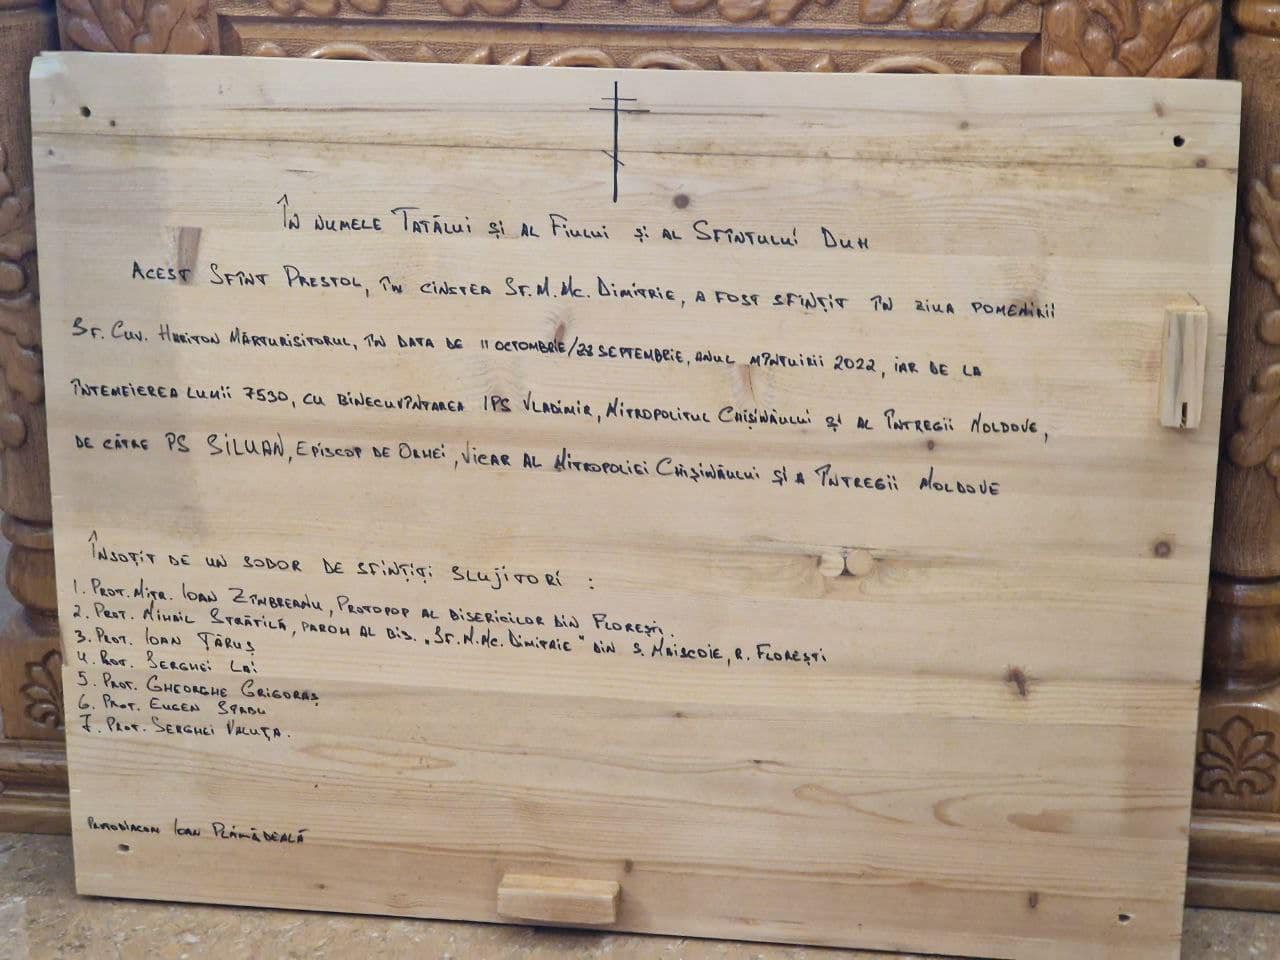 În numele Tatălui și al Fiului și al Sfîntului Duh
Acest Sfînt Prestol, în cinstea Sf. M. Mc. Dimitrie, a fost sfințit în ziua pomenirii
Sf. Cuv. Hariton Mărturisitorul, în data de 11 octombrie/28 septembrie, anul mîntuirii 2022, iar de la
întemeierea lumii 7530, cu binecuvîntarea IPS Vladimir, Mitropolitul Chișinăului și al Întregii Moldove,
de către PS Siluan, Episcop de Orhei, Vicar al Mitropoliei Chișinăului și a Întregii Moldove
Însoțit de un sobor de sfințiți slujitori :
1. Prot. Mitr. Ioan Zîmbreanu, Protopop al bisericilor din Florești.
2. Prot. Mihail Strătilă, paroh al bis. „Sf. M. Mc. Dimitrie" din s. , r. Florești
3. Prot. Ioan Țăruș
4. Prot. Serghei Lai
5. Prot. Gheorghe Grigoraș
6. Prot. Eugen
7. Prot. Serghei Valuța.
Protodiacon Ioan Plămădeală